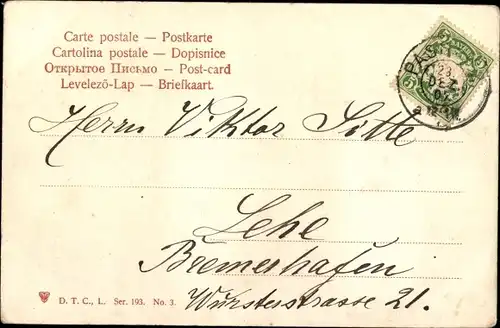 Carte postale — Postkarte
Cartolina postale — Dopisnice
Открытое Письмо — Post-card
Levelező-Lap — Briefkaart.
BAYERN
5
23
DEZ.
Herrn Viktor Sitte
Lehe
Bremerhafen
Wursterstrasse 21.
D. T. C., L. Ser. 193. No. 3.